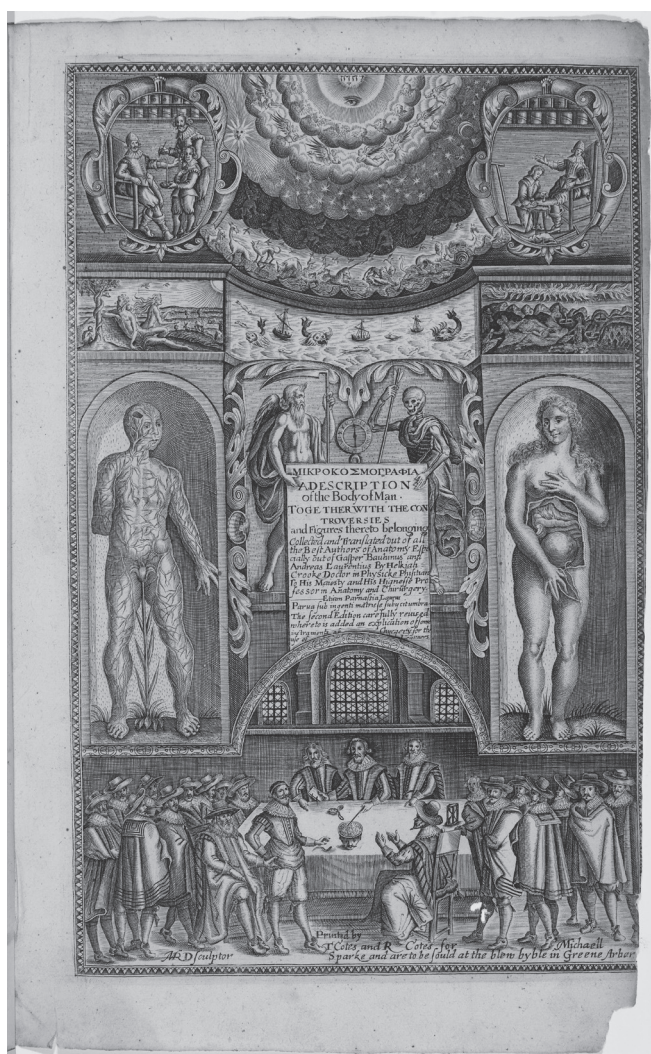 יהוה
ΜΙΚΡΟΚΟΣΜΟΓΡΑΦΙΑ
A DESCRIPTION
of the Body of Man.
TOGETHER WITH THE CON
TROVERSIES
and Figures thereto belonging
Collected and Translated out of all
the Best Authors of Anatomy Espe
cially out of Gasper Bauhinus and
Andreas Laurentius By Helkiah
Crooke Doctor in Physicke Phisitian
To His Maiesty and His Highnesse Pro
fessor in Anatomy and Chirurgery.
Etiam Parnassia Laurus
Parua sub ingenti matris se subijcit umbra
The second Edition carefully reuised
whereto is added an explication of some
for the
Printed by
T Cotes and R Cotes for Michaell
ARD sculptor
Sparke and are to be sould at the blew byble in Greene Arber